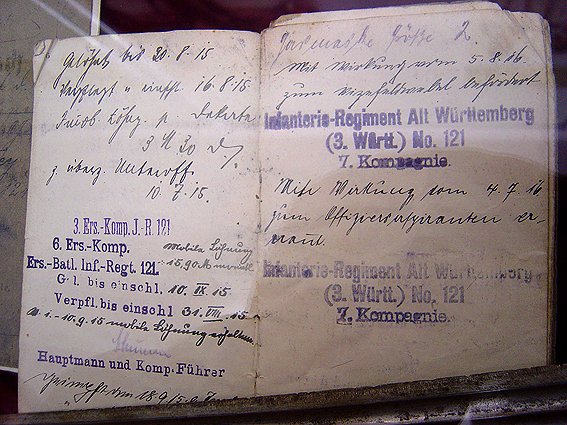 Gelöhnt bis 20.8.15
verpflegt " einschl. 16.8.15.
3 M 30
z. überz. Unteroff.
10.7.15.
3. Ers.-Komp. J.-R. 121
6. Ers.-Komp. mobile Löhnung
Ers.-Batl. Inf.-Regt. 121. 15,90 M
G l. bis einschl. 10. IX. 15
Verpfl. bis einschl 31. VIII. 15
v. 1.-10.9.15 mobile Löhnung erhalten
Hauptmann und Komp. Führer
18.9.15
Gasmaske Größe 2.
Mit Wirkung vom 5.8.16
zum Vizefeldwebel befördert
Infanterie-Regiment Alt Württemberg
(3. Württ.) No. 121
7. Kompagnie.
Mit Wirkung vom 4.7.16
zum Offiziersaspiranten er-
nannt.
Infanterie-Regiment Alt Württemberg
(3. Württ.) No. 121
7. Kompagnie.